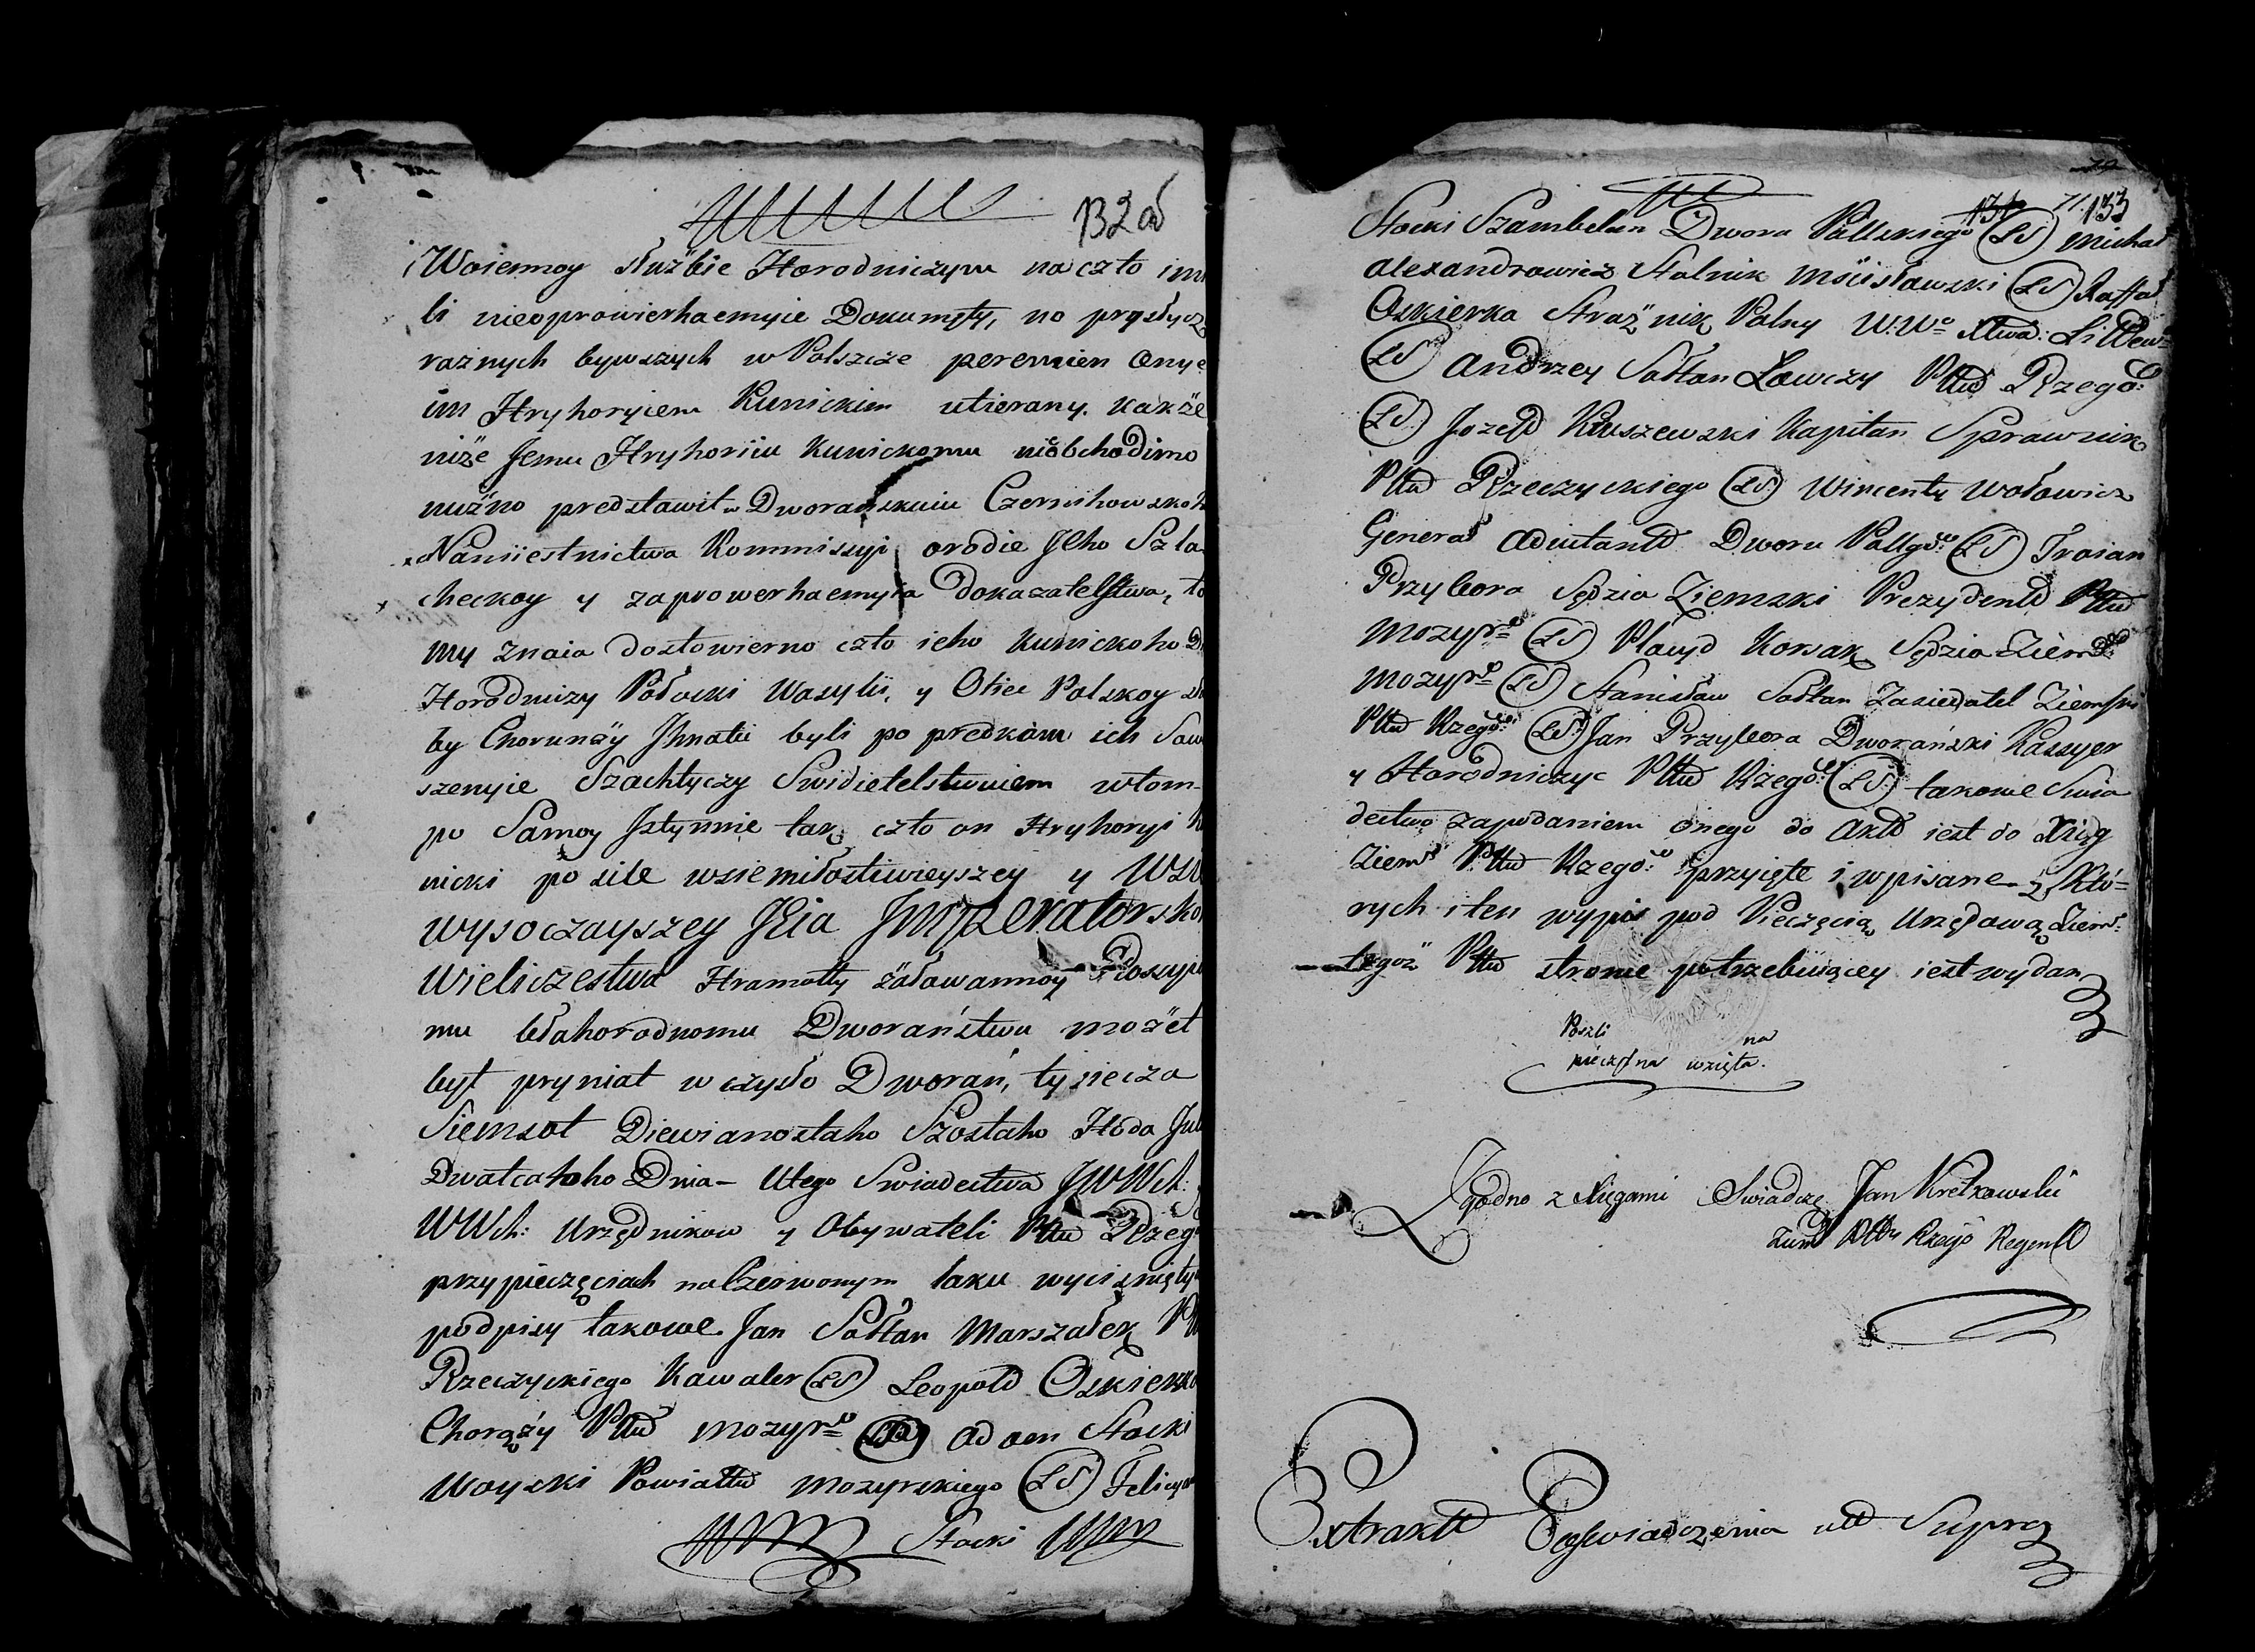 132 об
Woiennoy służbie Horodniczym na czto imi
li nieoprowierhaemyie Dokumęty, no pryslucz
raznych bywszych w Polszcze peremien onyie
im Hryhoryiem Kunickim utierany. kakże
niże Jemu Hryhoriiu Kunickomu nieobchodimo
nużno predstawit w Dworańskuiu Czernihowskoh
Namiestnictwa Kommissyi orodie Jeho Szla
checkoy y zaprowerhaemyia Dokazatelstwa, to
my znaia dostowierno czto ieho Kunickoho D
Horodniczy Połocki Wasylii, y Otiec Polskoy słu
by Chorunży Jhnatii byli po predkam ich Saw
szenyie Szachtyczy Swidietelstwuiem wtom
po Samoy Jstynnie tak, czto on Hryhoryi K
nicki po sile wsiemiłostiwieyszey y WSW
wysoczayszey JEia Jmperatorskoh
Wieliczestwa Hramotty żałowannoy Rossyi
mu błahorodnomu Dworaństwu możet
być pryniat w czysło Dworań, tysiecza
Siemsot Diewianostaho Szostaho Hoda Jul
Dwatcatoho Dnia – Utego Swiadectwa JWWch:
WWch: Urzędnikow y Obywateli Pttu Rzeg
przy pieczęciach na Czerwonym laku wycisnięty
podpisy takowe. Jan Sołtan Marszałek Ptt
Rzeczyckiego Kawaler (LS) Leopold Oskierko
Chorąży Pttu Mozyrgo (LS) Adam Stocki
Woyski Powiattu Mozyrskiego (LS) Felicyan
Stocki
133
Stocki Szambelan Dwora Pollskiego (LS) Michał
Alexandrowicz Stolnik Mścisławski (LS) Raffał
Oskierka Strażnik Polny W. Wo Xtwa: Littew:
(LS) Andrzey Sołtan Łowczy Pttu Rzego:
(LS) Jozeff Kruszewski Kapitan Sprawnik
Pttu Rzeczyckiego (LS) Wincenty Wołowicz
Generał Adiutantt Dworu Pollgo: (LS) Traian
Przybora Sędzia Ziemski Prezydentt Pttu
Mozyrgo (LS) Placyd Korsak Sędzia Ziem:
Mozyrgo (LS) Stanisław Sołtan Zasiedatel Ziemski
Pttu Rzego: (LS) Jan Przybora Dworański Kassyer
y Horodniczyc Pttu Rzego: (LS) takowe Swia
dectwo zapodaniem onego do Aktt iest do Xiąg
Ziem: Pttu Rzego: przyięte i wpisane z Któ=
rych i ten wypis pod Pieczęcią Urzędową Ziem:
tegoż Pttu stronie potrzebuiącey iest wydan
na
wzięta.
Zgodno z Xięgami Swiadczę Jan Kretkowski
Ziem Pttu Rzego Regentt
Extraktt Poswiadczenia utt Supra